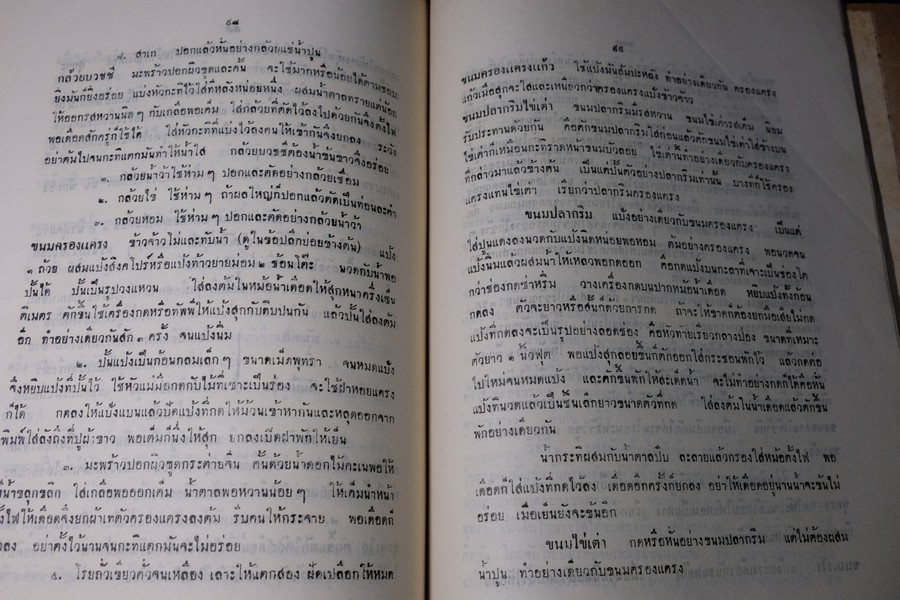 ๙๘
๗. สาเก ปอกแล้วหั่นอย่างกล้วยแช่น้ำปูน
กล้วยบวชชี มะพร้าวปอกผิวขูดและคั้น จะใช้มากหรือน้อยได้ตามชอบ
ยิ่งมันก็ยิ่งอร่อย แบ่งหัวกะทิไว้ใส่ทีหลังหน่อยหนึ่ง ผสมน้ำตาลทรายแต่น้อย
ให้ออกรสหวานนิดๆ กับเกลือพอเค็ม ใส่กล้วยที่ตัดไว้ลงไปด้วยกันจึงตั้งไฟ
พอเดือดสักครู่ก็ใช้ได้ ใส่หัวกะทิที่แบ่งไว้ลงคนให้เข้ากันจึงยกลง ระวัง
อย่าต้มไปจนกะทิแตกมันทำให้น้ำใส กล้วยบวชชีต้องน้ำข้นขาวจึงอร่อย
๑. กล้วยน้ำว้าใช้ห่ามๆ ปอกและตัดอย่างกล้วยเชื่อม
๒. กล้วยไข่ ใช้ห่ามๆ ถ้าผลใหญ่ก็ปอกแล้วตัดเป็นท่อนละคำ
๓. กล้วยหอม ใช้ห่ามๆ ปอกและตัดอย่างกล้วยน้ำว้า
ขนมครองแครง ข้าวจ้าวโม่และทับน้ำ (ดูในข้อปลีกย่อยข้างต้น) แบ่ง
๓ ถ้วย ผสมแป้งสิงคโปร์หรือแป้งท้าวยายม่อม ๒ ช้อนโต๊ะ นวดกับน้ำพอ
ปั้นได้ ปั้นเป็นรูปวงแหวน ใส่ลงต้มในหม้อน้ำเดือดให้สุกหนาครึ่งเซ็น
ติเมตร ตักขึ้นใช้เครื่องกดหรือทัพพีให้แป้งสุกกับดิบปนกัน แล้วปั้นใส่ลงต้ม
อีก ทำอย่างเดียวกันสัก ๓ ครั้ง จนแป้งนิ่ม
๒. ปั้นแป้งเป็นก้อนกลมเล็กๆ ขนาดเม็ดพุทรา จนหมดแป้ง
จึงหยิบแป้งที่ปั้นไว้ ใช้หัวแม่มือกดกับไม้ที่เซาะเป็นร่อง จะใช้ฝาหอยแครง
ก็ได้ กดลงให้แป้งแบนแล้วปัดแป้งที่กดให้ม้วนเข้าหากันและหลุดออกจาก
พิมพ์ใส่ลังถึงที่ปูผ้าขาว พอเต็มก็นึ่งให้สุก ยกลงเปิดฝาพักให้เย็น
๓. มะพร้าวปอกผิวขูดกระต่ายจีน คั้นด้วยน้ำดอกไม้กะเนพอให้
น้ำขลุกขลิก ใส่เกลือพอออกเค็ม น้ำตาลพอหวานน้อยๆ ให้เค็มนำหน้า
ตั้งไฟให้เดือดจึงยกผ้าเทตัวครองแครงลงต้ม รีบคนให้กระจาย พอเดือดก็
ลง อย่าตั้งไว้นานจนกะทิแตกมันจะไม่อร่อย
๔. โรยถั่วเขียวคั่วจนเหลือง เลาะให้แตกสอง ฝัดเปลือกให้หมด
๙๙
ขนมครองแครงแก้ว ใช้แป้งมันสัมปะหลัง ทำอย่างเดียวกัน ครองแครง
แก้วเมื่อสุกจะใสและเหนียวกว่าครองแครงแป้งข้าวจ้าว
ขนมปลากริมไข่เต่า ขนมปลากริมมีรสหวาน ขนมไข่เต่ารสเค็ม นิยม
รับประทานด้วยกัน คือตักขนมปลากริมใส่ก่อนแล้วตักขนมไข่เต่าใส่ข้างบน
ไข่เต่าก็เหมือนกะทิราดหน้าขนมบัวลอย ไข่เต่านั้นทำอย่างเดียวกับครองแครง
ที่กล่าวมาแล้วข้างต้น เป็นแต่ปั้นตัวอย่างปลากริมเท่านั้น บางทีก็ใช้ครอง
แครงแทนไข่เต่า เรียกว่าปลากริมครองแครง
ขนมปลากริม แป้งอย่างเดียวกับขนมครองแครง เป็นแต่
ใส่ปูนแดงลงนวดกับแป้งนิดหน่อยพอหอม ต้มอย่างครองแครง พอนวดจน
แป้งนิ่มแล้วผสมน้ำให้เหลวพอกดออก คือกดแป้งบนกะลาที่เจาะเป็นช่องโต
กว่าช่องกดซ่าหริ่ม วางเครื่องกดบนปากหม้อน้ำเดือด หยิบแป้งทั้งก้อน
กดลง ตัวจะยาวหรือสั้นก็ด้วยการกด ถ้าจะให้ขาดก็ต้องยกมือเสียไม่กด
แป้งที่กดลงจะเป็นรูปอย่างลอดช่อง คือหัวท้ายเรียวกลางป่อง ขนาดที่เหมาะ
ตัวยาว ๑ นิ้วฟุต พอแป้งสุกลอยขึ้นก็ตักออกใส่กระชอนพักไว้ แล้วกดต่อ
ไปใหม่จนหมดแป้ง และตักขึ้นพักให้สะเด็ดน้ำ จะไม่ทำอย่างกดก็ได้คือหั่น
แป้งที่นวดแล้วเป็นชิ้นเล็กยาวขนาดตัวที่กด ใส่ลงต้มในน้ำเดือดแล้วตักขึ้น
พักอย่างเดียวกัน
น้ำกระทิผสมกับน้ำตาลปีบ ละลายแล้วกรองใส่หม้อตั้งไฟ พอ
เดือดก็ใส่แป้งที่กดไว้ลง เดือดอีกครั้งก็ยกลง อย่าให้เดือดอยู่นานน้ำจะข้นไม่
อร่อย เมื่อเย็นยิ่งจะข้นอีก
ขนมไข่เต่า กดหรือหั่นอย่างขนมปลากริม แต่ไม่ต้องผสม
น้ำปูน ทำอย่างเดียวกับขนมครองแครง